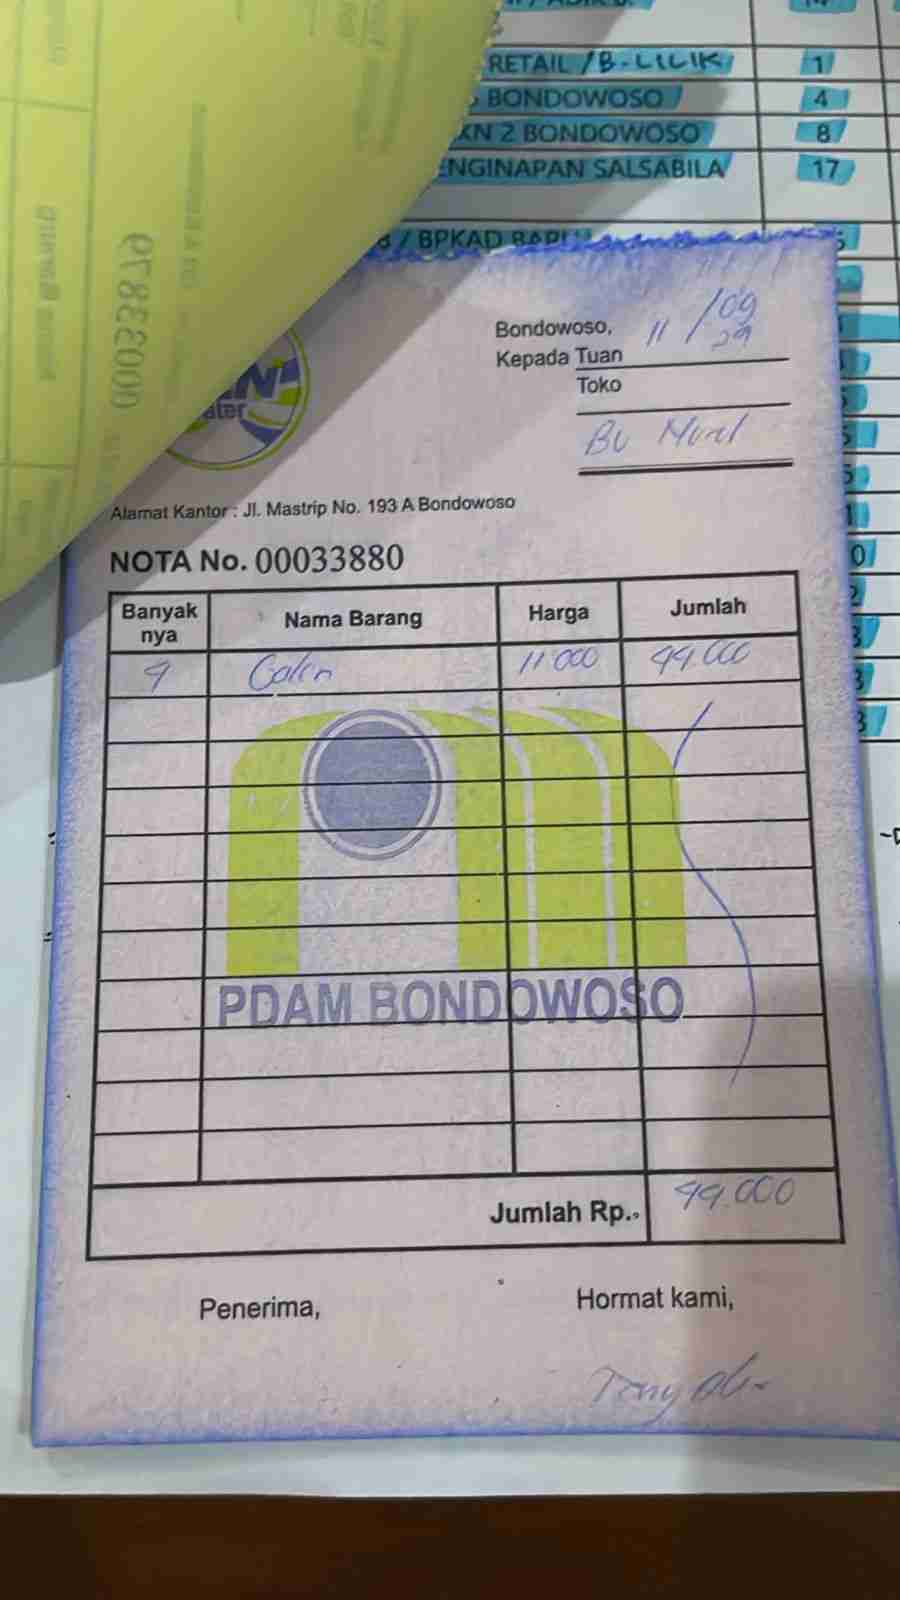 RETAIL / B-LILIK 1
BONDOWOSO 4
KN 2 BONDOWOSO 8
ENGINAPAN SALSABILA 17
/ BPKAD BARU
00033879
ater
Bondowoso, 11 / 09
Kepada Tuan
Toko
Bu
Alamat Kantor : Jl. Mastrip No. 193 A Bondowoso
NOTA No. 00033880
Banyak nya Nama Barang Harga Jumlah
4 Galon 11.000 44.000
PDAM BONDOWOSO
Jumlah Rp.. 44.000
Penerima, Hormat kami,